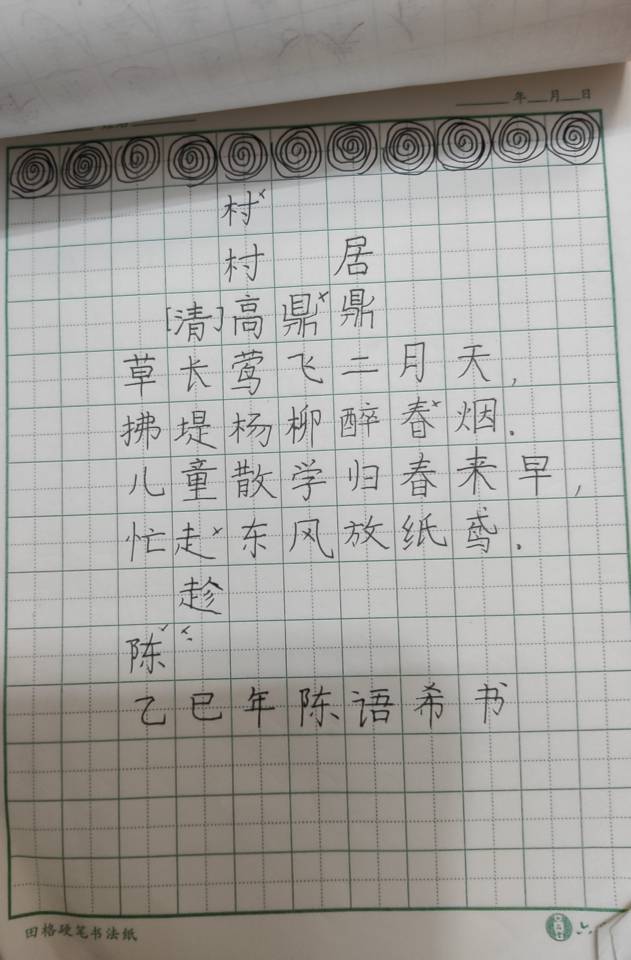 年 月 日
村
村 居
[清]高鼎鼎
草长莺飞二月天,
拂堤杨柳醉春烟.
儿童散学归春来早,
忙走东风放纸鸢.
趁
陈
乙巳年陈语希书
田格硬笔书法纸